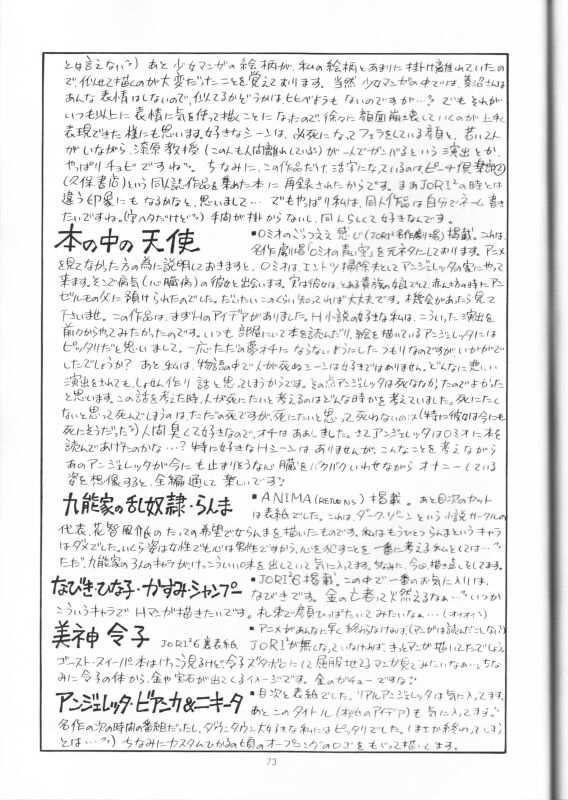 とは言えない^^;)あと少女マンガの絵柄が、私の絵柄とあまりに掛け離れていたの
で、似せて描くのが大変だったことを覚えております。当然少女マンガの中では、
あんな表情はしないので、似てるかどうかは比べようもないのですが…? でもそれが
いつも以上に表情に気を使って描くことになったので徐々に顔面崩し表していくのが上手く
表現できた様にも思います。好きなシーンは、必死になってフェラをしている顔と、若い2人
がいながら、漆原教授(このんも人間離れしていぶ)が一人でガンバるという演出とか、
やっぱりチョビですね。ちなみに、この作品だけ活字になっているのは、ピーチ倶楽部②
(久保書店)という同人誌作品を集めた本に再録されたからです。まあJORI²の時とは
違う印象にもなるかなと、思いまして… でもやっぱり私は、同人作品は自分でネーム書き
たいですね。(字ヘタだけど^^;)手間が掛からないし、同人らしくて好きなんです。
本の中の天使
■ロミオのごっつええ感じ(JORI²名作劇場)掲載。これは
名作劇場「ロミオの青い空」を元ネタにしております。アニメ
を見てなかった方の為に説明しておきますと、ロミオは、エントツ掃除夫としてアンジェレッタの家にやって
来ます。そこで病気(心臓病)の彼女と出会います。実は彼女は、とある貴族の娘でして、赤ん坊の時にアン
ゼルモの父に預けられたのでした。だいたいこのくらい知ってれば大丈夫です。機会があったら見て
下さいませ。この作品は、まずHのアイデアがありました。H小説の好きな私は、こういった演出を
前からやってみたかったのです。いつも部屋にいて本を読んだり、絵を描いているアンジェレッタには
ピッタリだと思いまして。一応ただの夢オチにならないようにしたつもりなのですが、いかがで
したでしょうか? あと私は、物語の中で人が死ぬシーンは好きではありません。どんなに悲しい
演出をされても、しょせん作り話と思ってしまうからです。その点アンジェレッタは死ななかったのでよかった
と思います。この話を考えた時、人が死にたいと考えるのはどんな時かを考えていました。死にたくし
ないと思って死んでしまうのは、ただの死ですが、死にたいと思って死わないのは(特に彼女は今にも
死にそうだった^^;)人間臭くて好きなので、オチはああしました。さてアンジェレッタはロミオに本を
読んであげたのかな…? 特に好きなHシーンはありませんが、こんなことを考えながら
あのアンジェレッタが今にも止まりそうな心臓をバクバクいわせながらオナニーしている
姿を想像すると、全編通して楽しいです!
九能家の乱奴隷・らんま
■ANIMA(RETURNS)掲載。あと目次のカット
は表紙でした。これは、ダーク・ゾーンという小説サークルの
代表、花智風作さんのたっての希望で女らんまを描いたものです。私はもうひとつらんまというキャラ
はダメでした。いくら姿は女性でも心は男性ですから、心を犯すことを一番に考える私としては…^^;
ただ、九能家の3人のキャラがけっこういい味を出していて気に入ってます。ちなみに、今回、描き直しとしてます。
なびき・ひな子・かすみ・シャンプー
■JORI²6掲載。この中で一番のお気に入りは、
なびきです。金の亡者って火燃えるなぁ…^^; いつか
こういうキャラでHマンガ描きたいです。札束で顔ひっぱたいてみたいなぁ…(オイオイ)
美神 令子
JORI²6裏表紙
■アニメがあんなに早く終わらなければ(マンガは読んだことない^^;)
JORI²が無くなっていなければ、きっとマンガ描いてたでしょう。
ゴースト・スイーパー本はけっこう見るけど、令子ズタボロにして屈服させてるマンガ見てみたいなぁ…。ちな
みに令子の体から、金や宝石が出てくるイメージです。金のガチューですな!
アンジェレッタ・ビアンカ&ニキータ
■目次と表紙でした。リアルアンジェレッタは気に入ってます。
あとこのタイトル(本当のアイデア)も気に入ってます。
名作の次の時間の番組だったし、ダウンタウン大好きな私にはピッタリでした。(まさか終わってしまう
とは…^^;)ちなみにカスタムひかるの頃のオープニングのロゴをもじって描いてます。
73